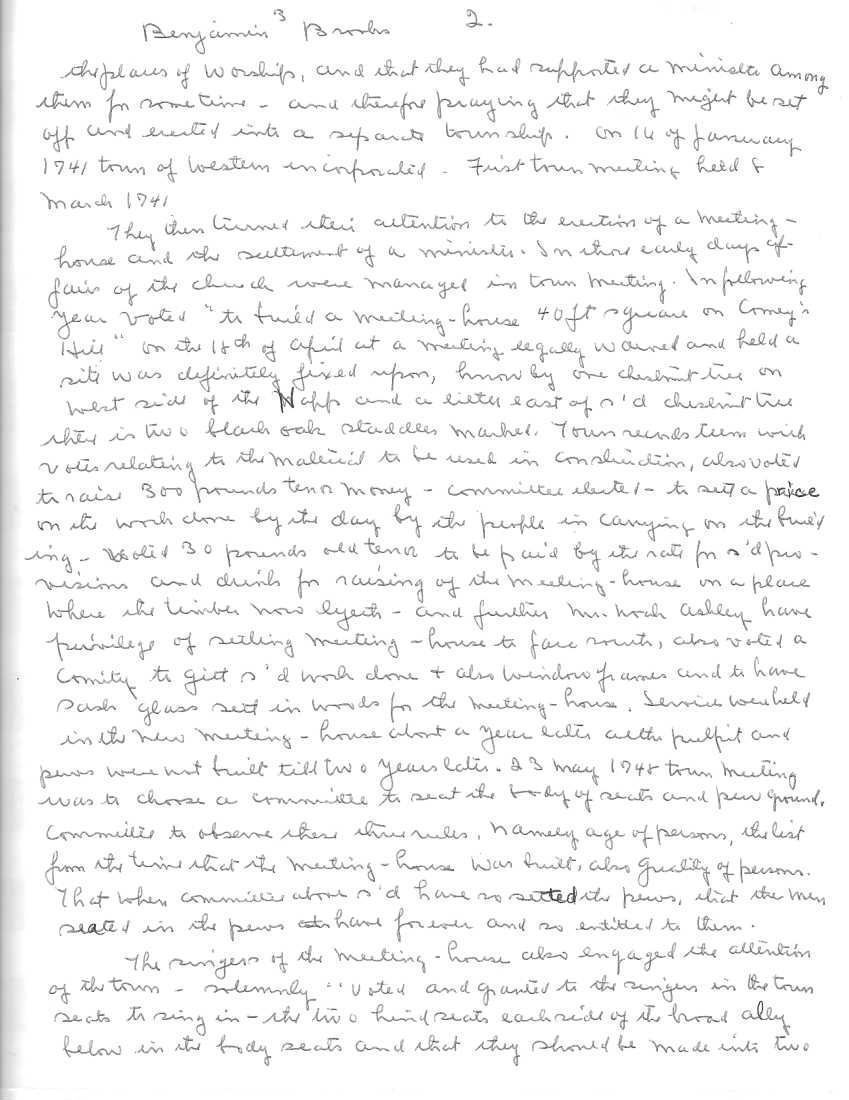 Benjamin³ Brooks 2.
the places of worship, and that they had supported a minister among
them for sometime - and therefore praying that they might be set
off and erected into a separate township. On 16 of January
1741 town of Western incorporated - First town meeting held 8
March 1741
They then turned their attention to the erection of a meeting-
house and the settlement of a minister. In those early days af-
fairs of the church were managed in town meeting. In following
year voted "to build a meeting-house 40 ft square on Comey's
Hill" on the 18th of April at a meeting legally warned and held a
site was definitely fixed upon, know by one chestnut tree on
west side of the and a little east of s'd chestnut tree
their is two black oak staddles marked. Town records teem with
votes relating to the material to be used in construction, also voted
to raise 300 pounds tenor money - committee elected - to sett a price
on the work done by the day by the people in carrying on the build
ing - Voted 30 pounds old tenor to be paid by the rate for s'd pro-
visions and drink for raising of the meeting-house on a place
where the timber now lyeth - and further Mr. Noah Ashley have
privilege of setting meeting-house to face south, also voted a
Comity to gitt s'd work done + also window frames and to have
sash glass sett in woods for the meeting-house. Services were held
in the new meeting-house about a year later altho pulpit and
pews were not built till two years later. 23 May 1748 town meeting
was to choose a committee to seat the body of seats and pew ground.
Committee to observe these three rules, namely age of persons, the list
from the time that the meeting-house was built, also quality of persons.
That when committee above s'd have so setted the pews, that the men
seated in the pews have forever and so entitled to them.
The singers of the meeting-house also engaged the attention
of the town - solemnly "voted and granted to the singers in the town
seats to sing in - the two hind seats each side of the broad ally
below in the body seats and that they should be made into two